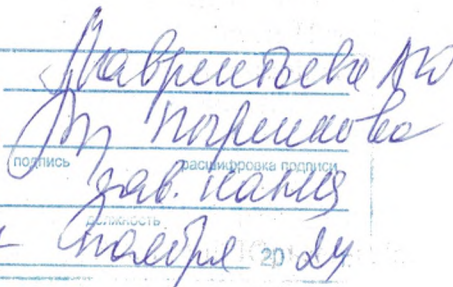 Лаврентьева АЮ
Пыренкова
подпись расшифровка подписи
зав. канц
должность
ноября 20 24